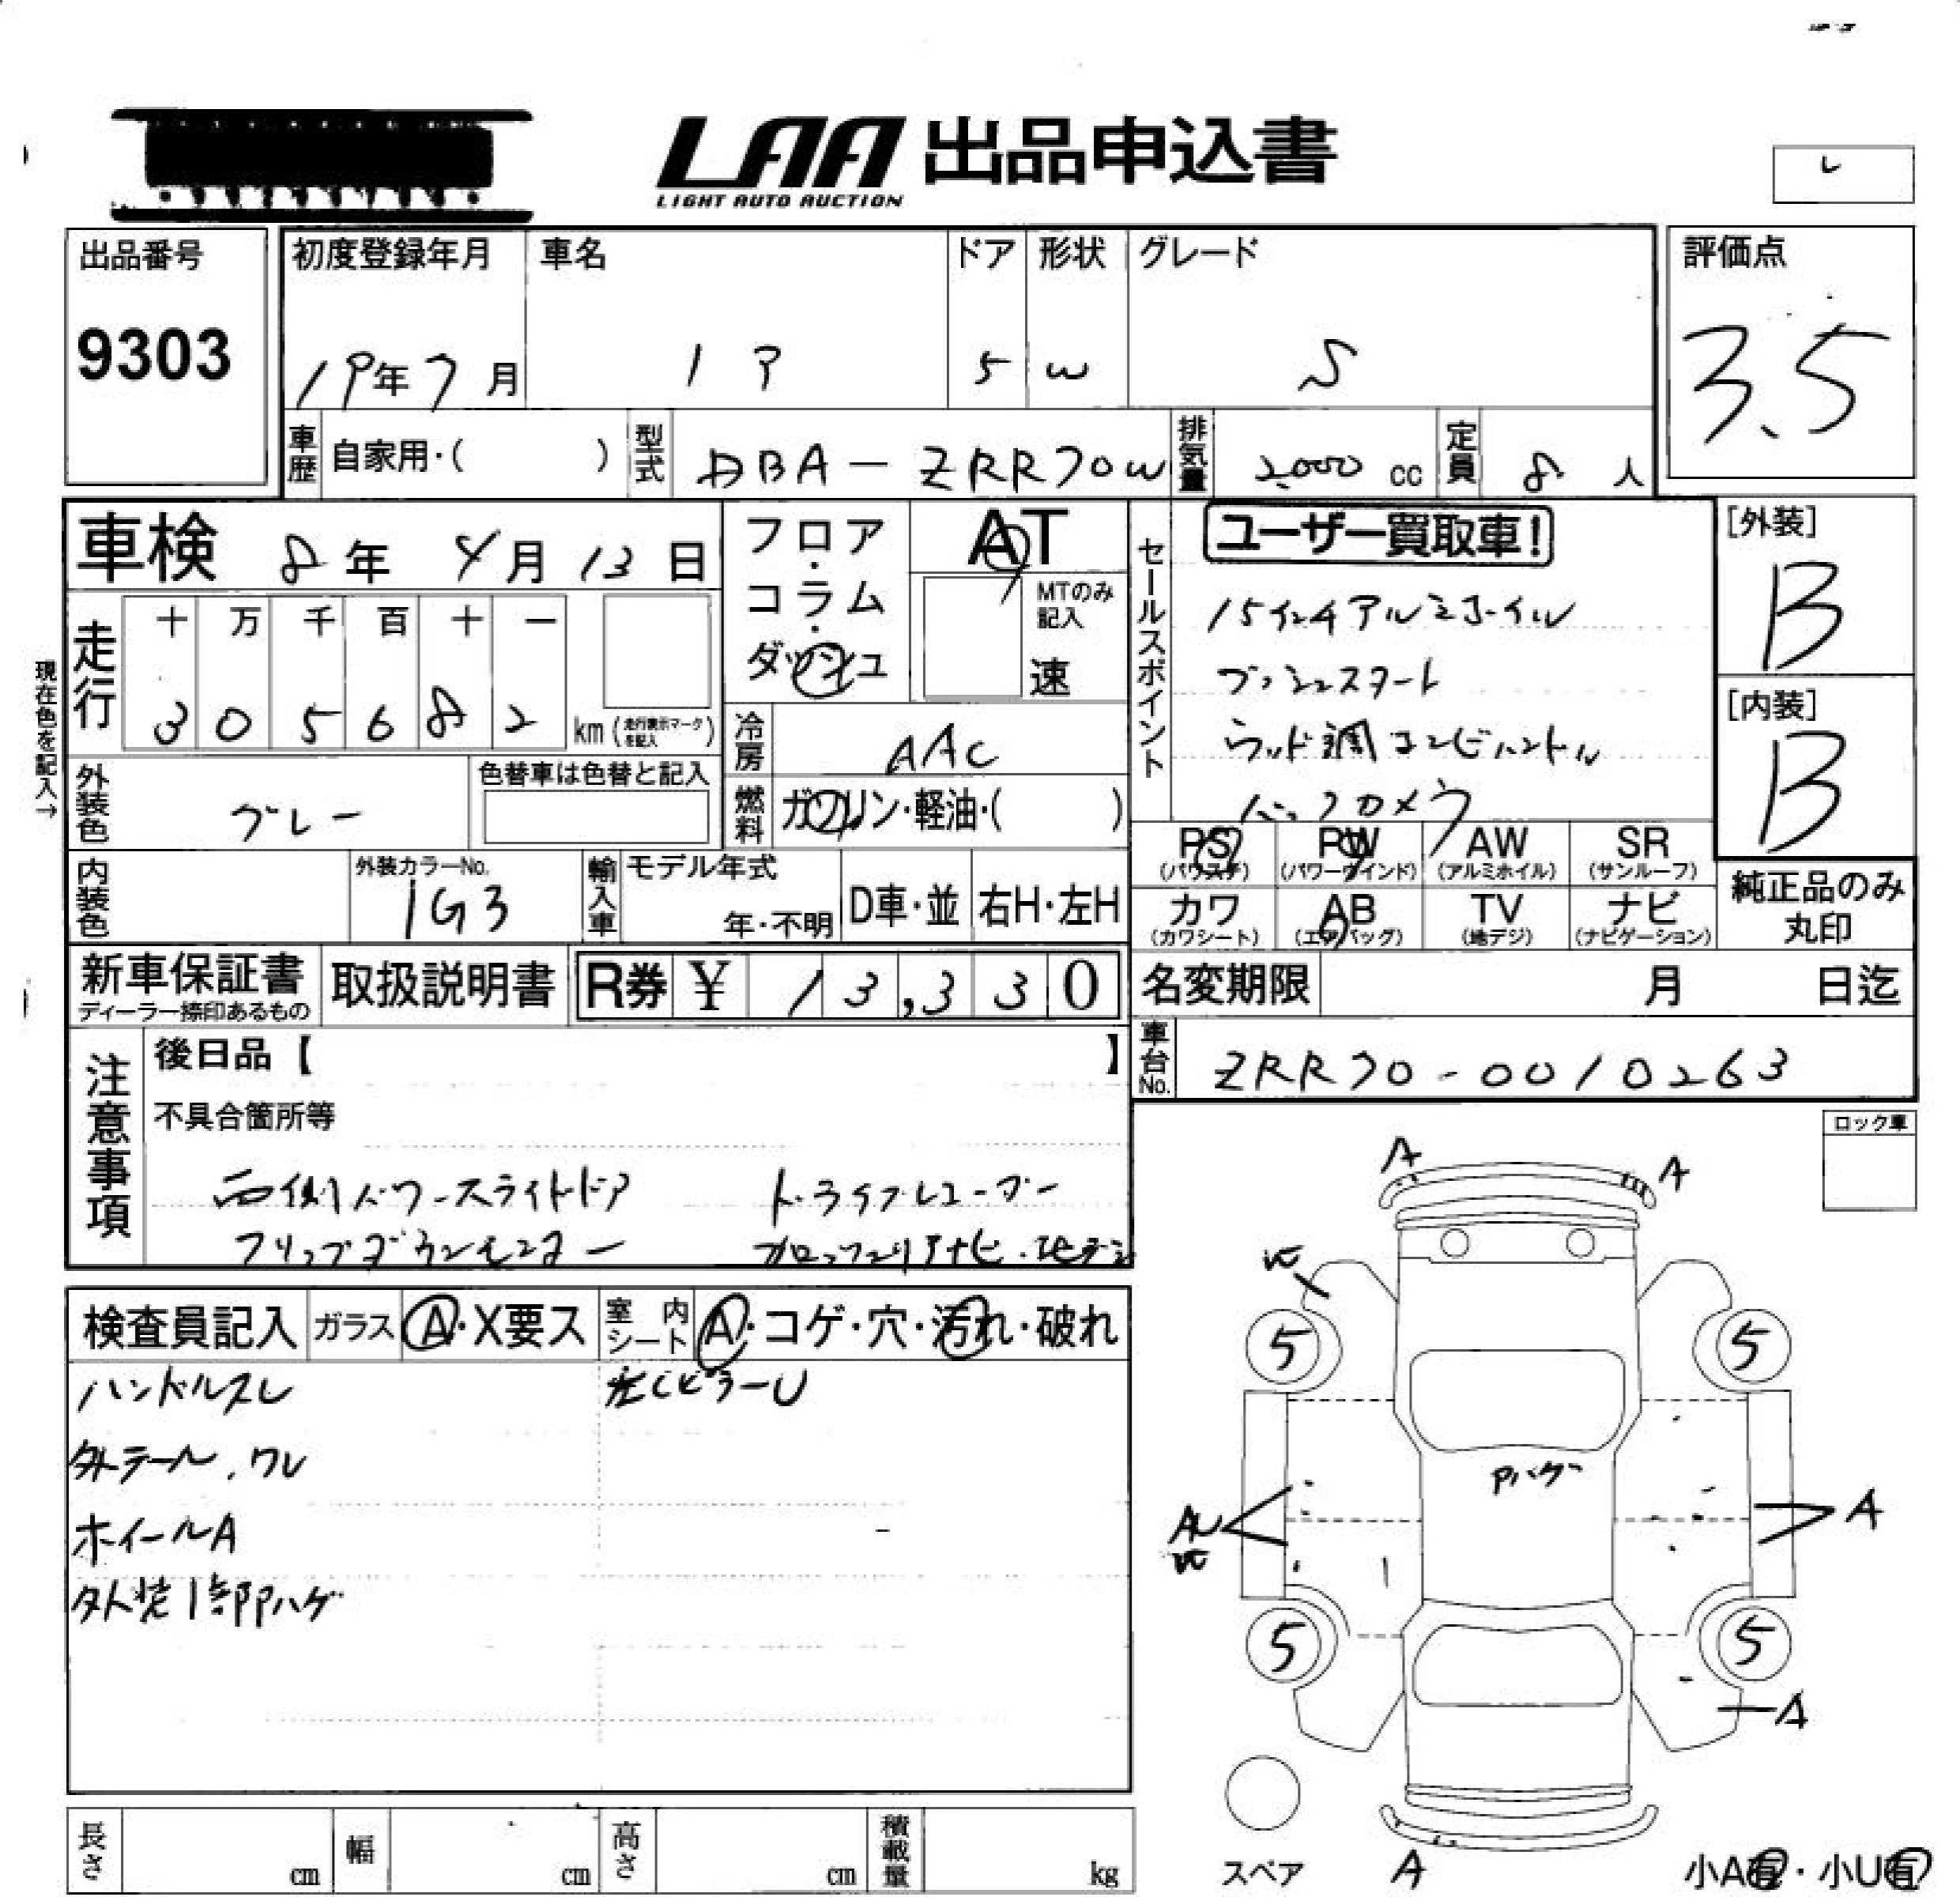 LAA 出品申込書
LIGHT AUTO AUCTION
レ
出品番号
9303
初度登録年月
19年7月
車名
ドア
5
形状
W
グレード
S
評価点
3.5
車歴 自家用・( )
型式 DBA-ZRR70W
排気量 2,000 cc
定員 8 人
車検 8年4月13日
フロア・コラム・ダッシュ
AT
MTのみ記入
速
セールスポイント
ユーザー買取車!
15インチアルミホイル
プッシュスタート
ウッド調コンビハンドル
バックカメラ
[外装]
B
[内装]
B
現在色を記入→
走行
十 万 千 百 十 一
3 0 5 6 8 2 km (走行表示マークを記入)
冷房 AAC
外装色 グレー
色替車は色替と記入
燃料 ガソリン・軽油・( )
PS (パワステ)
PW (パワーウインド)
AW (アルミホイル)
SR (サンルーフ)
カワ (カワシート)
AB (エアバッグ)
TV (地デジ)
ナビ (ナビゲーション)
純正品のみ
丸印
内装色
外装カラーNo.
1G3
輸入車
モデル年式
年・不明
D車・並
右H・左H
新車保証書
ディーラー捺印あるもの
取扱説明書
R券 ¥ 13,330
名変期限 月 日迄
車台No. ZRR70-0010263
注意事項
後日品【 】
不具合箇所等
両側パワースライドドア ドライブレコーダー
フリップダウンモニター
ロック車
検査員記入
ガラス A・X要ス
室内シート A・コゲ・穴・汚れ・破れ
ハンドルスレ
左CピラーU
外テール、ワレ
ホイールA
外装1部Pハゲ
A
A
5
5
Pハゲ
A
5
5
A
A
スペア
小A有・小U有
長さ cm
幅 cm
高さ cm
積載量 kg